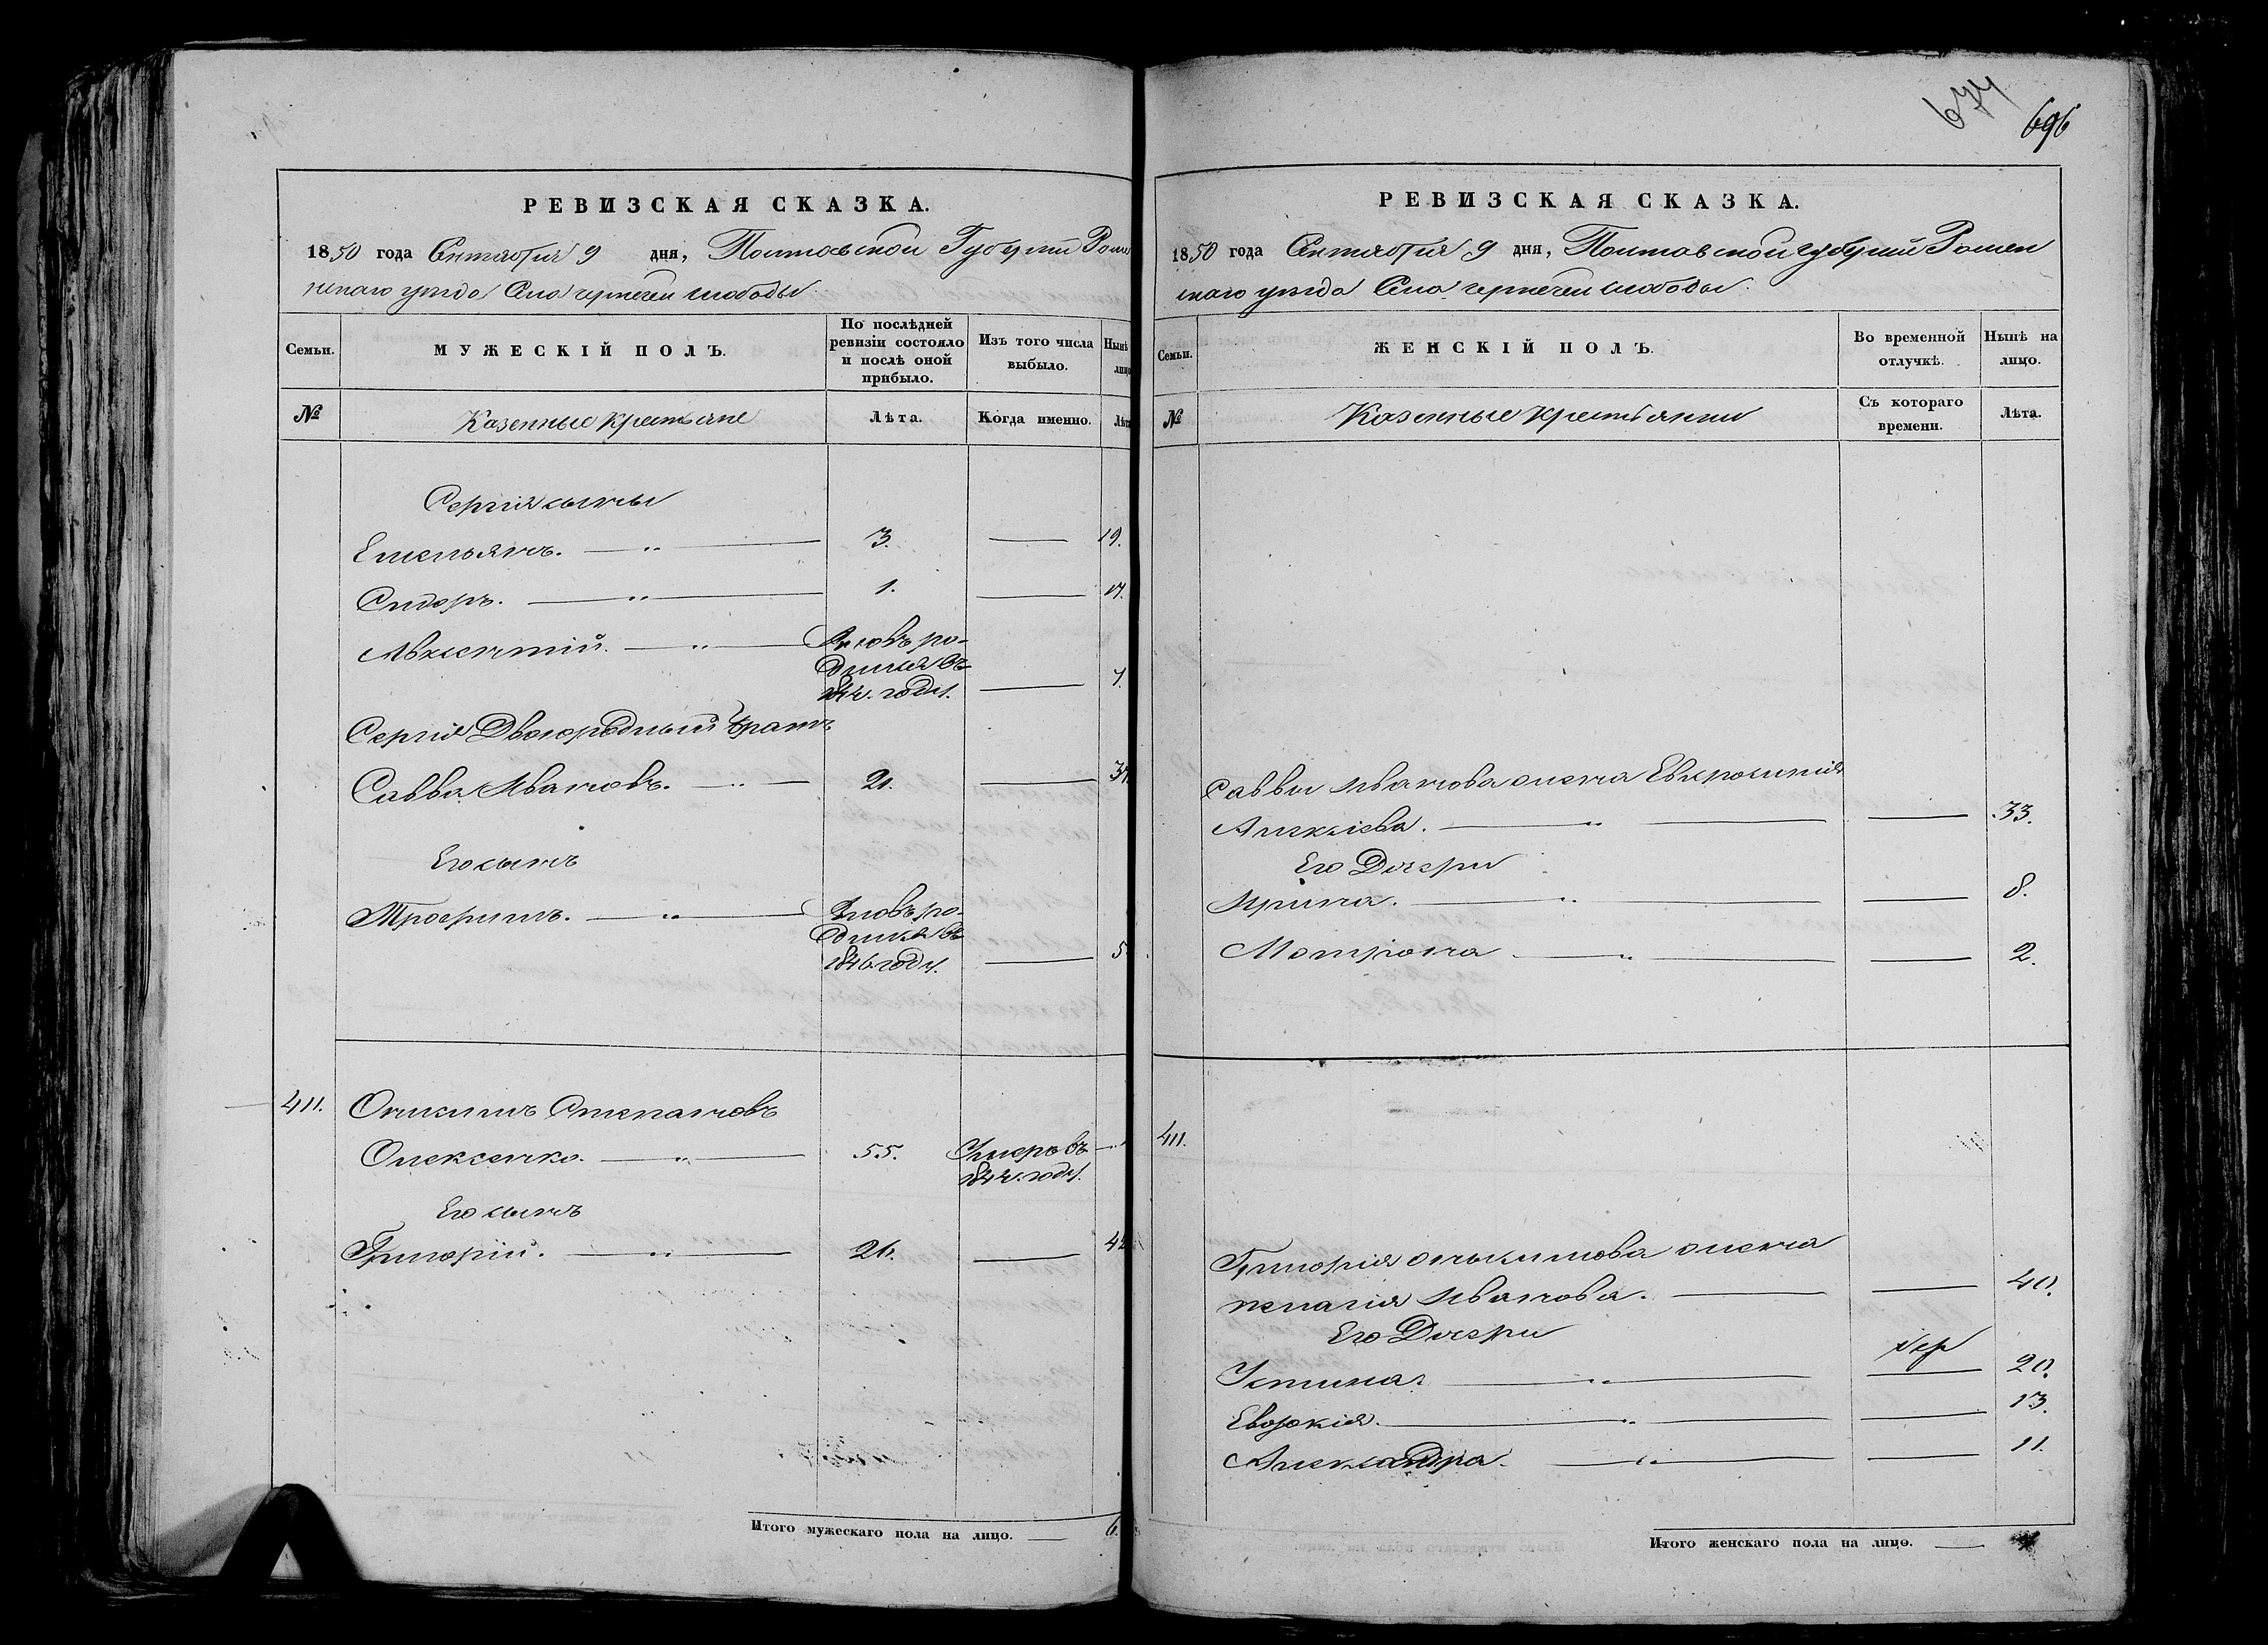 674
696
РЕВИЗСКАЯ СКАЗКА.
1850 года Сентября 9 дня, Полтавской Губерніи Ромен
скаго уезда Села чернечей слободы
Семьи.
МУЖЕСКІЙ ПОЛЪ.
По послѣдней ревизіи состояло и послѣ оной прибыло.
Изъ того числа выбыло.
Нынѣ
лицо
№
Казенные Крестьяне
Лѣта.
Когда именно.
Лѣт
Сергія сыны
Емельянъ. — " — 3. — 19.
Сидоръ. — " — 1. — 17.
Авксентій. — " — Вновь ро-
дился въ
1844. году. — 7.
Сергія Двоюродный братъ
Савва Ивановъ. — " — 21. — 37.
Его сынъ
Трофимъ. — " — Вновь ро-
дился въ
1846 году. — 5
411. Онисимъ Степановъ
Олексенко. — " — 55. Умеръ въ —
1844. году.
Его сынъ
Григорій. — " — 26. — 42
Итого мужескаго пола на лицо. — 6.
РЕВИЗСКАЯ СКАЗКА.
1850 года Сентября 9 дня, Полтавской губерніи Ромен
скаго уезда Села чернечей слободы
Семьи.
ЖЕНСКІЙ ПОЛЪ.
Во временной отлучкѣ.
Нынѣ на лицо.
№
Казенные крестьянки
Съ котораго времени.
Лѣта.
Саввы Иванова жена Евфросинія
Алексіева. — " — — 33.
Его Дочери
Ирина. — " — — 8.
Матрона — " — — 2.
411.
Григорія Онисимова жена
пелагія Иванова. — — 40.
Его Дочери
Устина. — " — — 20.
Евдокія. — " — — 13.
Александра. — " — — 11.
Итого женскаго пола на лицо. —